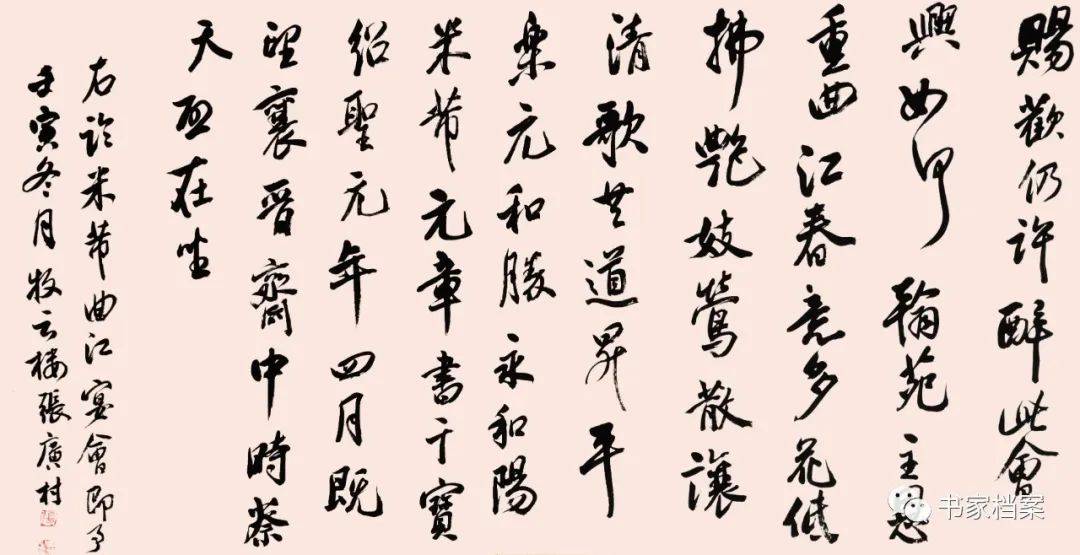 賜歡仍許醉此會
興如何翰苑主恩
重曲江春意多花低
拂艷妓鶯散讓
清歌共道昇平
樂元和勝永和陽
米芾元章書于寶
紹聖元年四月既
望襄晋齋中時蔡
天啟在坐
右臨米芾曲江宴會即事
壬寅冬月牧云楼張廣村
书家档案